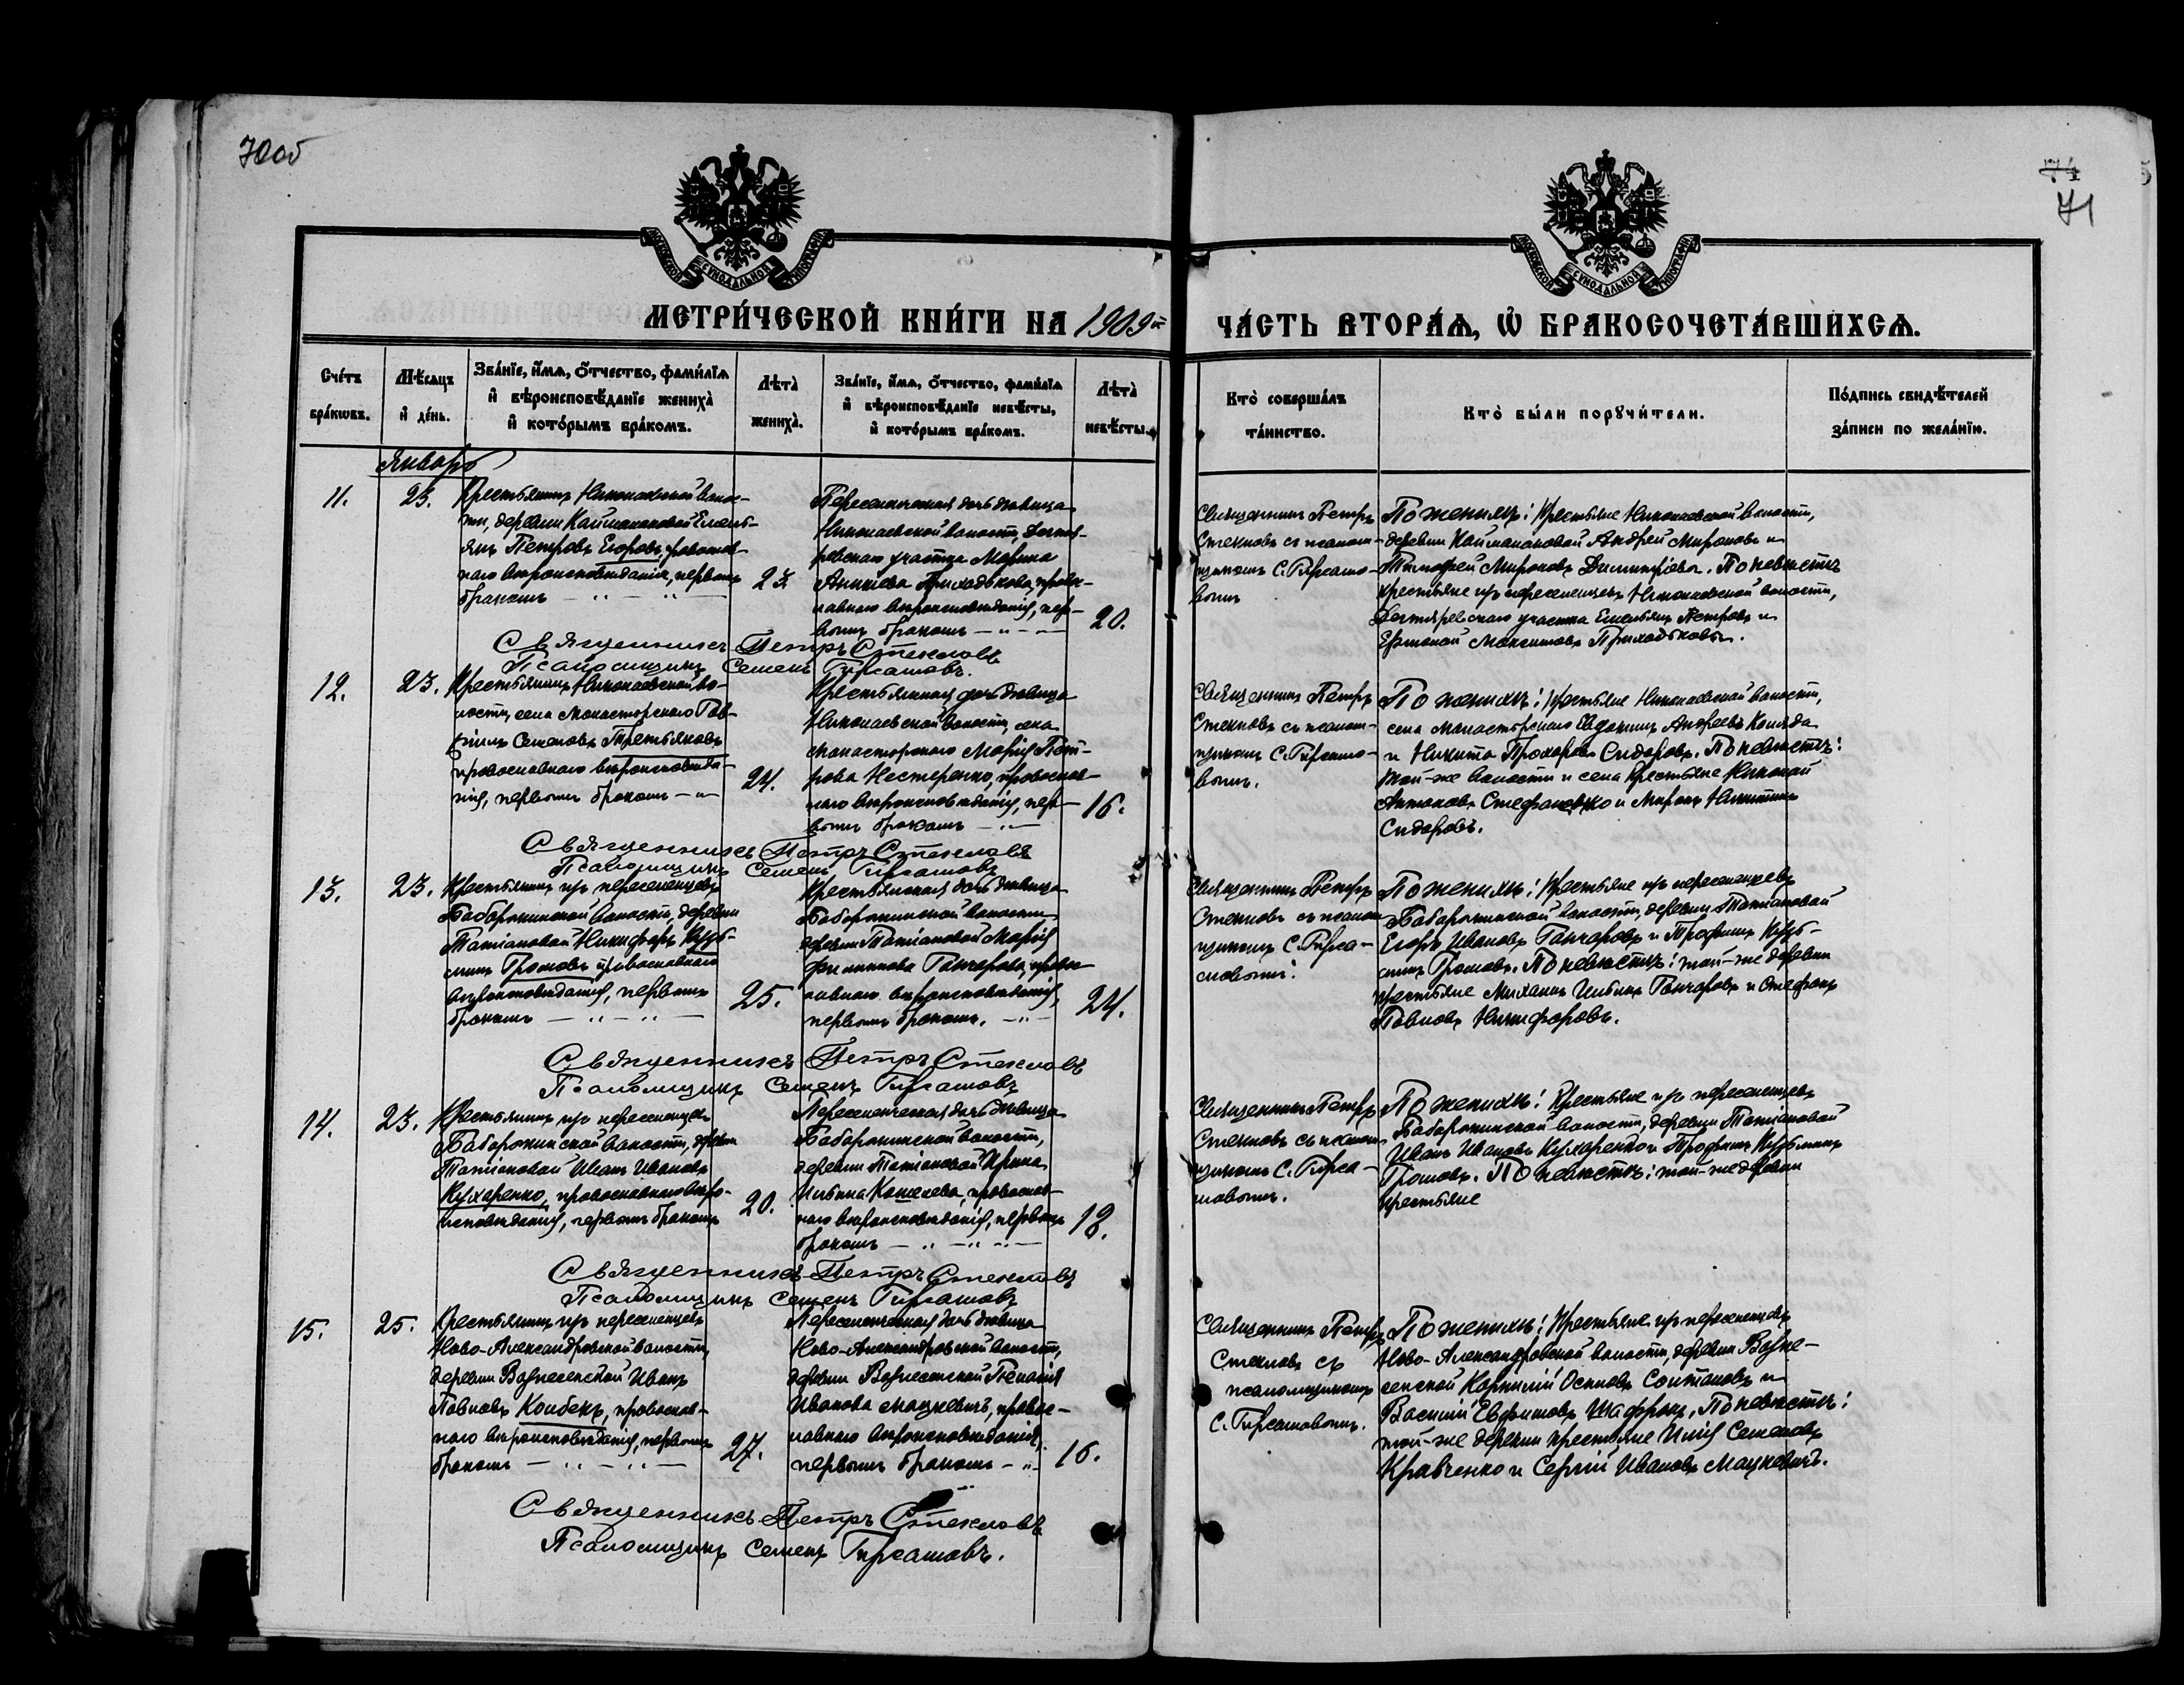 70об
71
71
МОСКОВСКОЙ СѴНОДАЛЬНОЙ ТИПОГРАФІИ
МОСКОВСКОЙ СѴНОДАЛЬНОЙ ТИПОГРАФІИ
МЕТРИ́ЧЕСКОЙ КНИ́ГИ НА 1909й ЧА́СТЬ ВТОРА́Ѧ, Ѡ҆ БРАКОСОЧЕТА́ВШИХСѦ.
Сче́тъ бра́кѡвъ.
Мѣ́сѧцъ и҆ де́нь.
Зва́нїе, и҆́мѧ, ѻ҆́тчество, фами́лїѧ
и҆ вѣроисповѣ́данїе жениха̀
и҆ кото́рымъ бра́комъ.
Лѣта̀ жениха̀.
Зва́нїе, и҆́мѧ, ѻ҆́тчество, фами́лїѧ
и҆ вѣроисповѣ́данїе невѣ́сты,
и҆ кото́рымъ бра́комъ.
Лѣта̀ невѣ́сты.
Кто̀ соверша́лъ та́инство.
Кто̀ бы́ли порꙋчи́тели.
По́дпись свидѣ́телей за́писи по жела́нїю.
Январь
11.
23.
Крестьянинъ Николаевской волос-
ти, деревни Кайманаковой Емель-
янъ Петровъ Егоровъ, православ-
наго вѣроисповѣданія, первымъ
бракомъ
23
Переселенческая дочь дѣвица
Николаевской волости, Дегтя-
ревскаго участка Марина
Аникіева Приходькова, право-
славнаго вѣроисповѣданія, пер-
вымъ бракомъ
20.
Священникъ Петръ
Стекловъ съ псалом-
щикомъ С. Гирсамо-
вымъ
По женихѣ: Крестьяне Николаевской волости,
деревни Кайманаковой Андрей Мироновъ и
Тимофей Мироновъ Димитріевы. По невѣстѣ
крестьяне изъ переселенцевъ Николаевской волости,
Дегтяревскаго участка Емельянъ Петровъ и
Ермолай Максимовъ Приходьковы.
Священникъ Петръ Стекловъ
Псаломщикъ Семенъ Гирсамовъ.
12.
23.
Крестьянинъ Николаевской во-
лости, села Монастырскаго Гав-
ріилъ Семеновъ Третьяковъ
православнаго вѣроисповѣда-
нія, первымъ бракомъ
24.
Крестьянская дочь дѣвица
Николаевской волости, села
Монастырскаго Марія Пет-
рова Нестеренко, православ-
наго вѣроисповѣданія, пер-
вымъ бракомъ
16.
Священникъ Петръ
Стекловъ съ псалом-
щикомъ С. Гирсамо-
вымъ.
По женихѣ: Крестьяне Николаевской волости,
села Монастырскаго Евдокимъ Андреевъ Коляда
и Никита Прохоровъ Сидоровъ. По невѣстѣ:
той-же волости и села крестьяне Николай
Антоновъ Стефановко и Миронъ Никитинъ
Сидоровъ.
Священникъ Петръ Стекловъ
Псаломщикъ Семенъ Гирсамовъ
13.
23.
Крестьянинъ изъ переселенцевъ
Бабарыкинской волости, деревни
Татіановой Никифоръ Кузь-
минъ Громовъ православнаго
вѣроисповѣданія, первымъ
бракомъ
25.
Крестьянская дочь дѣвица
Бабарыкинской волости
деревни Татіановой Марія
Филиппова Гончарова, право-
славнаго вѣроисповѣданія,
первымъ бракомъ.
24.
Священникъ Петръ
Стекловъ съ псалом-
щикомъ С. Гирса-
мовымъ.
По женихѣ: Крестьяне изъ переселенцевъ
Бабарыкинской волости, деревни Татіановой
Егоръ Ивановъ Гончаровъ и Трофимъ Кузь-
минъ Громовъ. По невѣстѣ: той-же деревни
крестьяне Михаилъ Ильинъ Гончаровъ и Стефанъ
Павловъ Никифоровъ.
Священникъ Петръ Стекловъ
Псаломщикъ Семенъ Гирсамовъ
14.
23.
Крестьянинъ изъ переселенцевъ
Бабарыкинской волости, деревни
Татіановой Иванъ Ивановъ
Кухаренко, православнаго вѣро-
исповѣданія, первымъ бракомъ
20.
Переселенческая дочь дѣвица
Бабарыкинской волости,
деревни Татіановой Ирина
Ильина Кошелева, православ-
наго вѣроисповѣданія, первымъ
бракомъ
18.
Священникъ Петръ
Стекловъ съ псалом-
щикомъ С. Гирса-
мовымъ.
По женихѣ: Крестьяне изъ переселенцевъ
Бабарыкинской волости, деревни Татіановой
Иванъ Ивановъ Кухаренко и Трофимъ Кузьминъ
Громовъ. По невѣстѣ: той-же деревни
крестьяне
Священникъ Петръ Стекловъ
Псаломщикъ Семенъ Гирсамовъ
15.
25.
Крестьянинъ изъ переселенцевъ
Ново-Александровской волости,
деревни Вознесенской Иванъ
Павловъ Колбекъ, православ-
наго вѣроисповѣданія, первымъ
бракомъ
27.
Переселенческая дочь дѣвица
Ново-Александровской волости,
деревни Вознесенской Пелагія
Иванова Мацкевичъ, правос-
лавнаго вѣроисповѣданія,
первымъ бракомъ
16.
Священникъ Петръ
Стекловъ съ
псаломщикомъ
С. Гирсамовымъ.
По женихѣ: Крестьяне изъ переселенцевъ
Ново-Александровской волости, деревни Возне-
сенской Корнилій Осиповъ Солтановъ и
Василій Евфимовъ Шафранъ. По невѣстѣ:
той-же деревни крестьяне Илія Семеновъ
Кравченко и Сергій Ивановъ Мацкевичъ.
Священникъ Петръ Стекловъ
Псаломщикъ Семенъ Гирсамовъ.